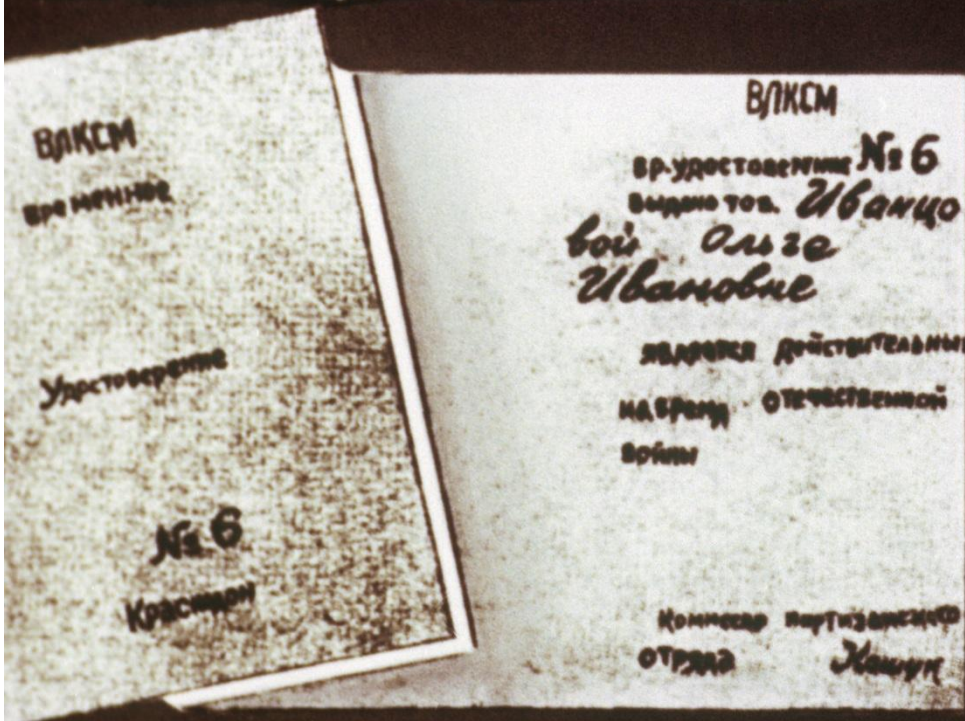 ВЛКСМ
временное
Удостоверение
№ 6
Краснодон
ВЛКСМ
вр. удостоверение № 6
выдано тов. Иванцо
вой Ольге
Ивановне
является действительным
на время отечественной
войны
Комиссар партизанского
отряда Кашук